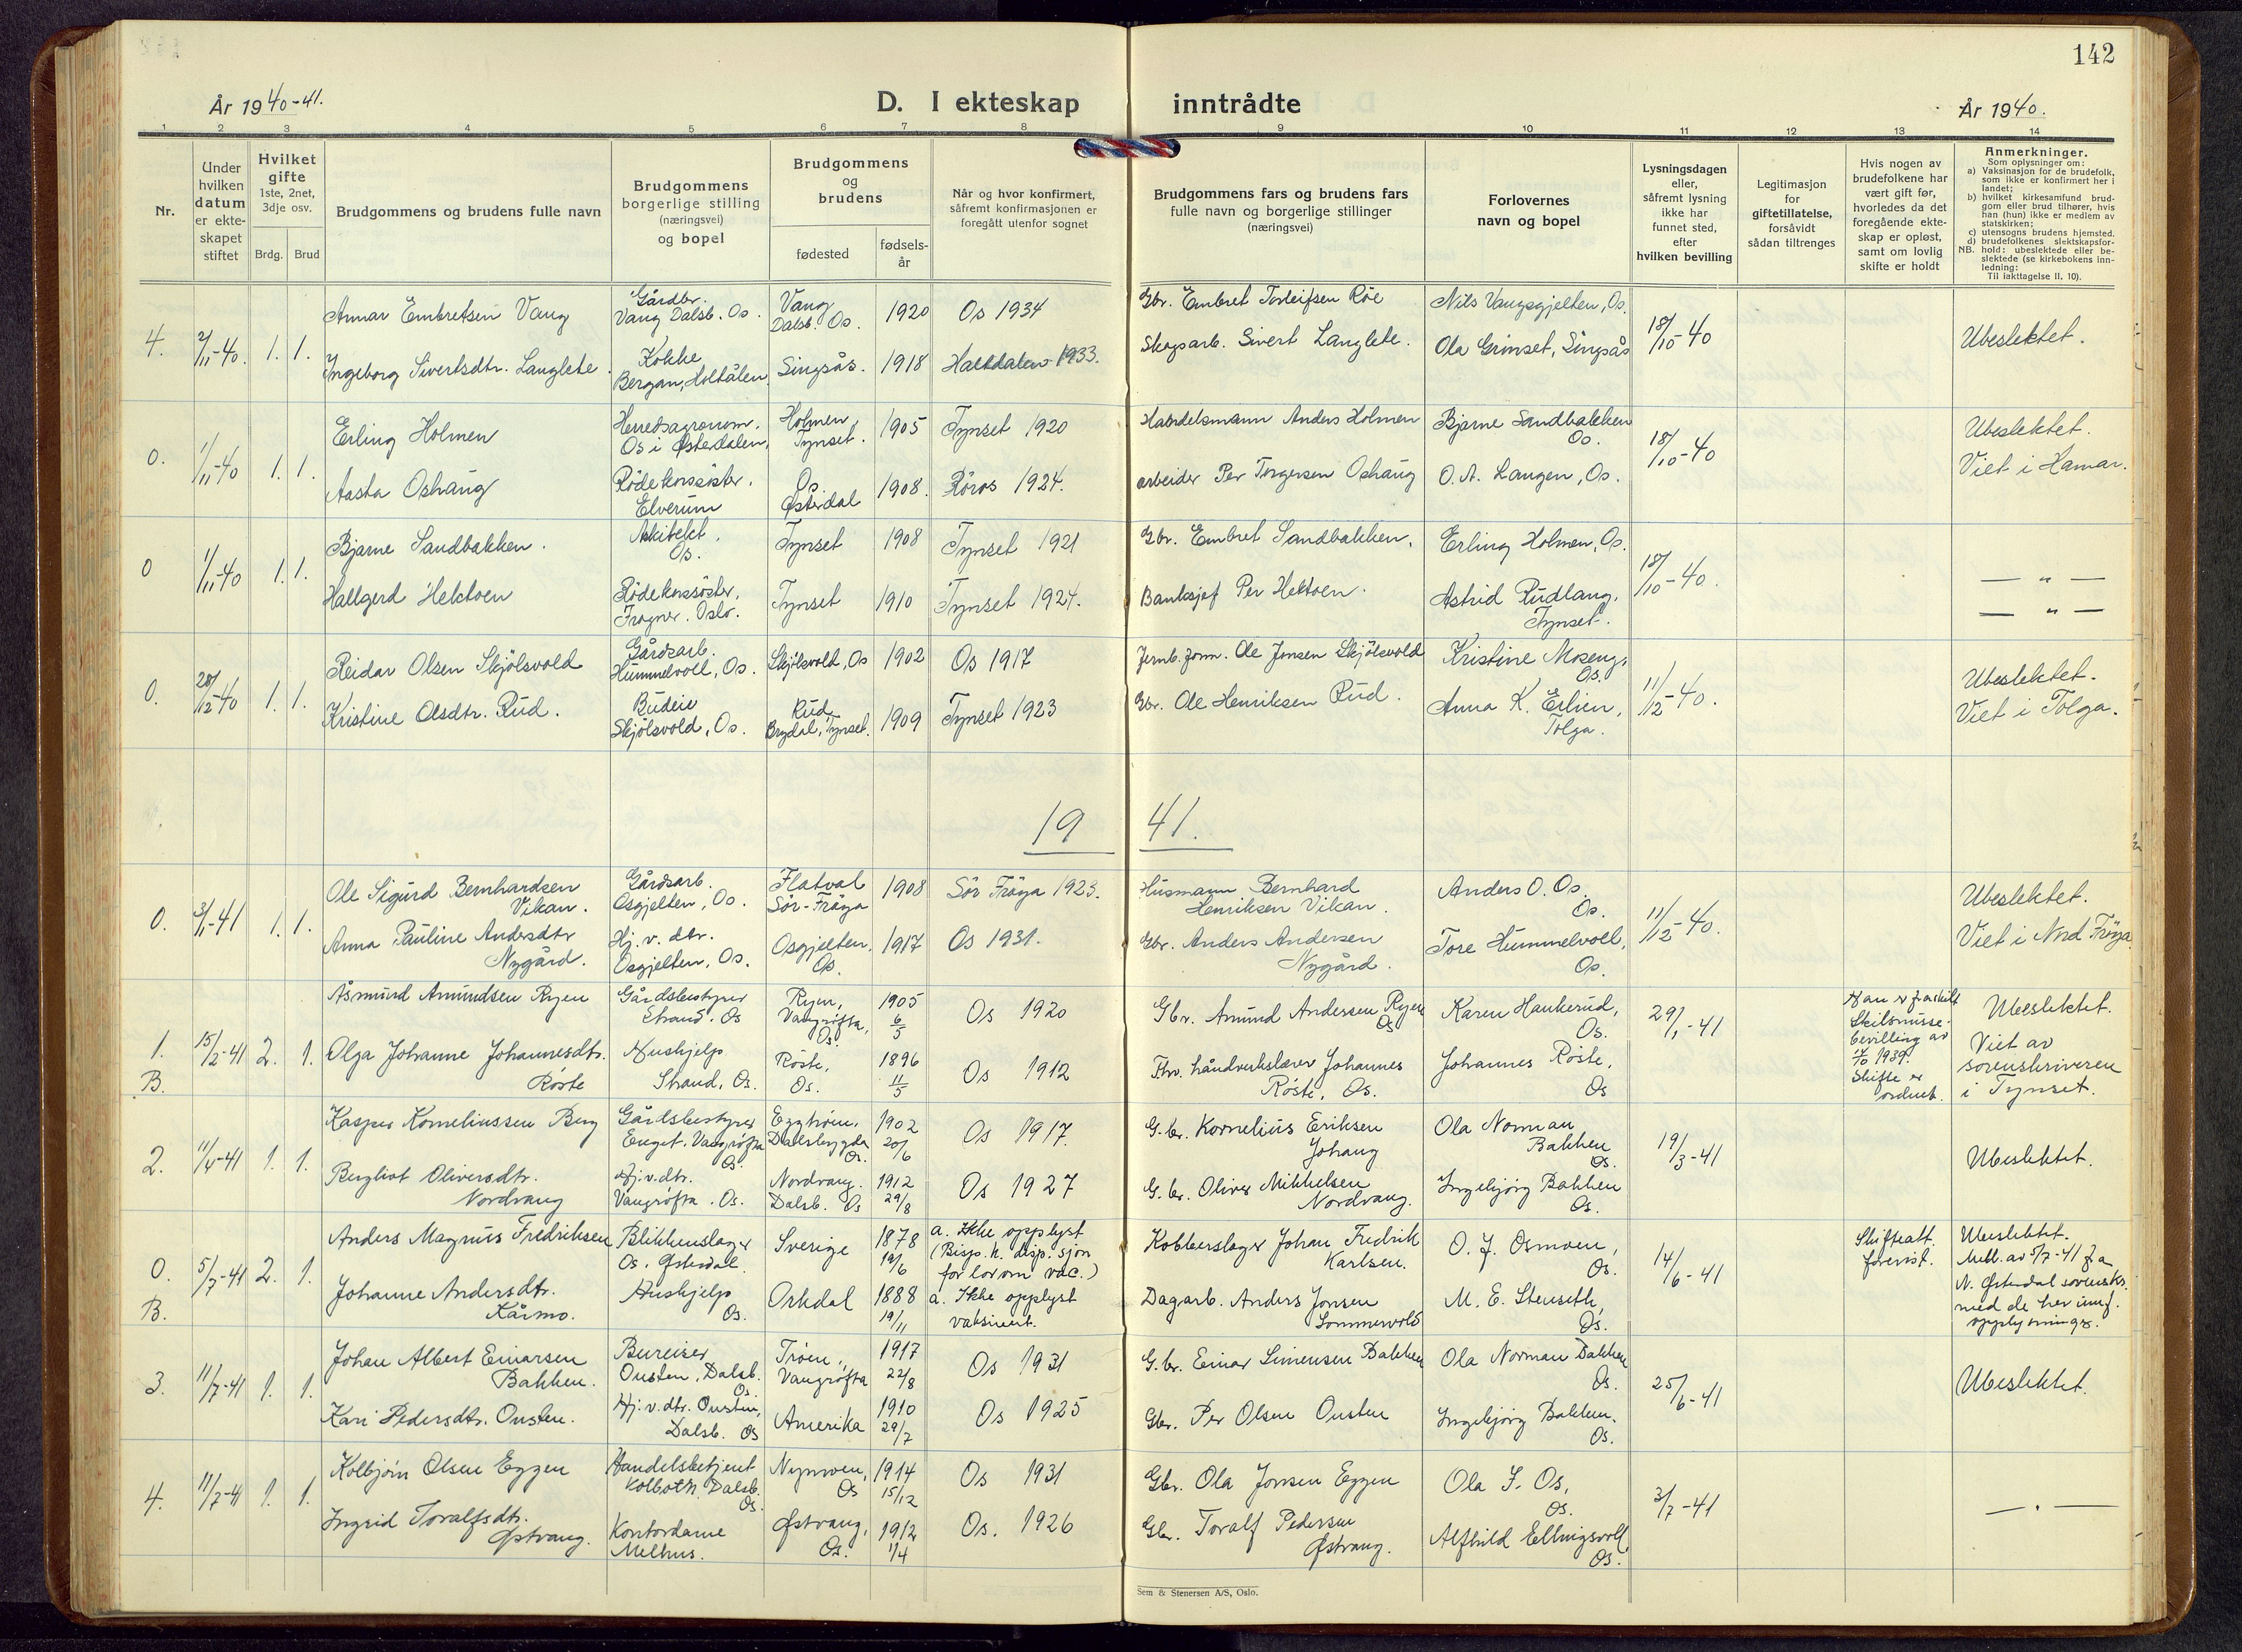 142
År 1940-41.
D. I ekteskap inntrådte
År 1940.
1 2 3 4 5 6 7 8 9 10 11 12 13 14
Nr.
Under
hvilken
datum
er ekte-
skapet
stiftet
Hvilket
gifte
1ste, 2net,
3dje osv.
Brdg. Brud
Brudgommens og brudens fulle navn
Brudgommens
borgerlige stilling
(næringsvei)
og bopel
Brudgommens
og
brudens
fødested
fødsels-
år
Når og hvor konfirmert,
såfremt konfirmasjonen er
foregått utenfor sognet
Brudgommens fars og brudens fars
fulle navn og borgerlige stillinger
(næringsvei)
Forlovernes
navn og bopel
Lysningsdagen
eller,
såfremt lysning
ikke har
funnet sted,
efter
hvilken bevilling
Legitimasjon
for
giftetillatelse,
forsåvidt
sådan tiltrenges
Hvis nogen av
brudefolkene har
vært gift før,
hvorledes da det
foregående ekte-
skap er opløst,
samt om lovlig
skifte er holdt
Anmerkninger.
Som oplysninger om:
a) Vaksinasjon for de brudefolk,
som ikke er konfirmert her i
landet;
b) hvilket kirkesamfund brud-
gom eller brud tilhører, hvis
han (hun) ikke er medlem av
statskirken;
c) utensogns brudens hjemsted.
d) brudefolkenes slektskapsfor-
NB. hold: ubeslektede eller be-
slektede (se kirkebokens inn-
ledning:
Til iakttagelse II, 10).
4. 2/11-40. 1. 1.
Annar Embretsen Vang
Gårdbr.
Vang Dalsb. Os.
Vang
Dalsb. Os.
1920
Os 1934
Gbr. Embret Torleifsen Röe
Nils Vangsgjelten, Os.
18/10-40
Ubeslektet.
Ingeborg Sivertsdtr. Langlete.
Kokke
Bergan, Holtålen
Singsås.
1918
Haltdalen 1933.
Skogsarb. Sivert Langlete.
Ola Grinset, Singsås
0. 1/11-40 1. 1.
Erling Holmen
Herredsagronom.
Os i Østerdalen.
Holmen,
Tynset.
1905
Tynset 1920
Handelsmann Anders Holmen
Bjarne Sandbakken
Os.
18/10-40
Ubeslektet.
Viet i Hamar.
Aasta Oshaug
Rödekorssöster.
Elverum
Os
Østerdal
1908.
Röros 1924.
arbeider Per Torgersen Oshaug
O. A. Langen, Os.
0 1/11-40 1. 1.
Bjarne Sandbakken.
Arkitekt.
Os.
Tynset
1908
Tynset 1921
Gbr. Embret Sandbakken.
Erling Holmen, Os.
18/10-40.
— " —
— " —
Hallgerd Hektoen
Rödekorssöster,
Frogner. Oslo.
Tynset
1910
Tynset 1924.
Banksjef Per Hektoen.
Astrid Rudlang,
Tynset.
0. 28/12-40 1. 1.
Reidar Olsen Skjölsvold
Gårdsarb.
Hummelvoll, Os.
Skjölsvold, Os
1902
Os 1917
Jernb.form. Ole Jonsen Skjölsvold
Kristine Moseng,
Os.
11/12-40.
Ubeslektet.
Viet i Tolga.
Kristine Olsdtr. Rud.
Budeie
Skjölsvold, Os.
Rud,
Brydal, Tynset.
1909
Tynset 1923
Gbr. Ole Henriksen Rud.
Anna K. Erlien,
Tolga.
1941.
0. 3/1-41 1. 1.
Ole Sigurd Bernhardsen
Vikan.
Gårdsarb.
Osgjelten, Os.
Flatval
Sör-Fröya
1908
Sör Fröya 1923.
Husmann Bernhard
Henriksen Vikan.
Anders O. Os.
Os.
11/12-40.
Ubeslektet.
Viet i Nord Fröya.
Anna Pauline Andersdtr
Nygård.
Hj. v. dtr.
Osgjelten, Os.
Osgjelten,
Os.
1917
Os 1931.
Gbr. Anders Andersen
Nygård.
Tore Hummelvoll,
Os.
1. B. 15/2-41 2. 1.
Åsmund Amundsen Ryen
Gårdsbestyrer
Strand. Os
Ryen,
Vangrøfta,
Os.
1905
6/5
Os 1920
Gbr. Amund Andersen Ryen
Os
Karen Haukerud,
Os.
29/1-41
Han er fraskilt
Skilsmisse-
bevilling av
1939.
Skifte er
ordnet.
Ubeslektet.
Viet av
sorenskriveren
i Tynset.
Olga Johanne Johannesdtr.
Røste
Hushjelp
Strand, Os.
Røste,
Os.
1896
11/5
Os 1912
Fhv. håndverkslærer Johannes
Røste, Os.
Johannes Røste,
Os
2. 11/4-41 1. 1.
Kasper Korneliussen Berg
Gårdsbestyrer
Enget, Vangrøfta
Os.
Eggtrøen,
Dalsbygda
Os.
1902
20/6
Os 1917.
G.br. Kornelius Eriksen
Johaug
Ola Norman
Bakken
Os.
19/3-41
Ubeslektet.
Bergliot Oliversdtr.
Nordvang
Hj.v.dtr.
Vangrøfta. Os.
Nordvang.
Dalsb. Os
1912
29/8
Os 1927
G.br. Oliver Mikkelsen
Nordvang.
Ingebjørg Bakken
Os.
0. B. 5/7-41 2. 1.
Anders Magnus Fredriksen
Blikkenslager
Os. Østerdal.
Sverige
1878
19/6
a. Ikke opplyst
(Bisp. h. disp. sjon
for lov om vac.)
Kobberslager Johan Fredrik
Karlsen.
O. J. Osmoen,
Os.
14/6-41
Skifteatt.
forevist.
Ubeslektet.
Meld. av 5/7-41 fra
N. Østerdal sorenskr.
med de her innf.
opplysninger.
Johanne Andersdtr.
Kårmo.
Hushjelp
Os.
Orkdal
1888
19/11
a. Ikke opplyst
vaksinert.
Dagarb. Anders Jonsen
Sommervold
M. E. Stenseth,
Os.
3. 11/7-41 1. 1.
Johan Albert Einarsen
Bakken.
Bureiser
Ousten, Dalsb.
Os.
Trøen,
Vangrøfta
1917
22/8
Os 1931
G.br. Einar Simensen Bakken
Ola Norman Bakken
Os.
25/6-41
Ubeslektet.
Kari Pedersdtr. Ousten.
Hj.v.dtr. Ousten,
Dalsb. Os
Amerika
1910
29/7
Os 1925
Gbr. Per Olsen Ousten
Ingebjørg Bakken.
Os.
4. 11/7-41 1. 1.
Kolbjørn Olsen Eggen
Handelsbetjent
Kolboth, Dalsb.
Os.
Nymoen,
Os
1914
15/12
Os 1931
Gbr. Ola Jonsen Eggen
Ola S. Os,
Os.
3/7-41
— " —
Ingrid Toralfsdtr.
Østvang.
Kontordame
Melhus.
Østvang,
Os.
1912
1/4
Os. 1926
Gbr. Toralf Pedersen
Østvang.
Alfhild Ellingsvoll,
Os.
Sem & Stenersen A/S, Oslo.